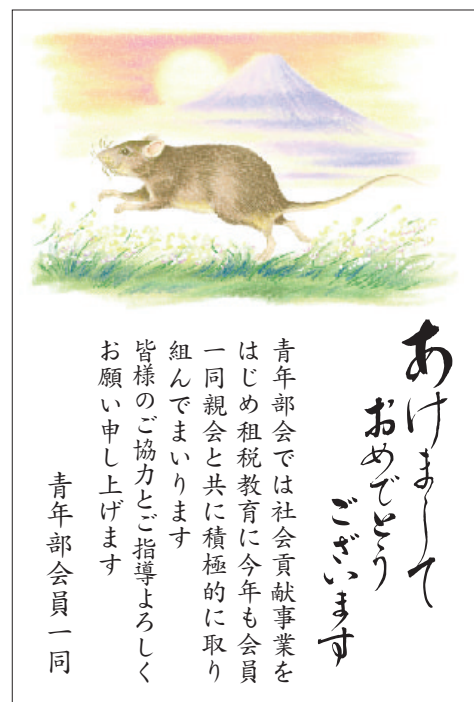 あけまして
おめでとう
ございます
青年部会では社会貢献事業を
はじめ租税教育に今年も会員
一同親会と共に積極的に取り
組んでまいります
皆様のご協力とご指導よろしく
お願い申し上げます
青年部会員一同